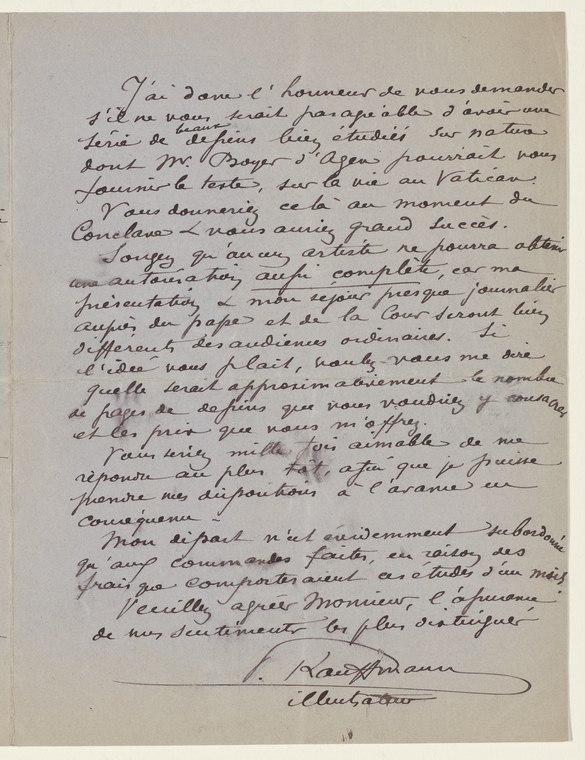 J'ai donc l'honneur de vous demander
s'il ne vous serait pas agréable d'avoir une
série de beaux dessins bien étudiés sur nature
dont Mr. Boyer d'Agen pourrait vous
fournir le texte, sur la vie au Vatican.
Vous donneriez celà au moment du
Conclave & vous auriez grand succès.
Songez qu'aucun artiste ne pourra obtenir
une autorisation aussi complète, car ma
présentation & mon séjour presque journalier
auprès du pape et de la Cour seront bien
différents des audiences ordinaires. Si
l'idée vous plait, voulez-vous me dire
quelle serait approximativement le nombre
de pages de dessins que vous voudriez y consacrer
et les prix que vous m'offrez.
Vous seriez mille fois aimable de me
répondre au plus tôt, afin que je puisse
prendre mes dispositions à l'avance en
conséquence -
Mon départ n'est évidemment subordonné
qu'aux commandes faites, en raison des
frais que comporteraient ces études d'un mois
Veuillez agréer Monsieur, l'assurance
de mes sentiments les plus distingués
P. Kauffmann
illustrateur